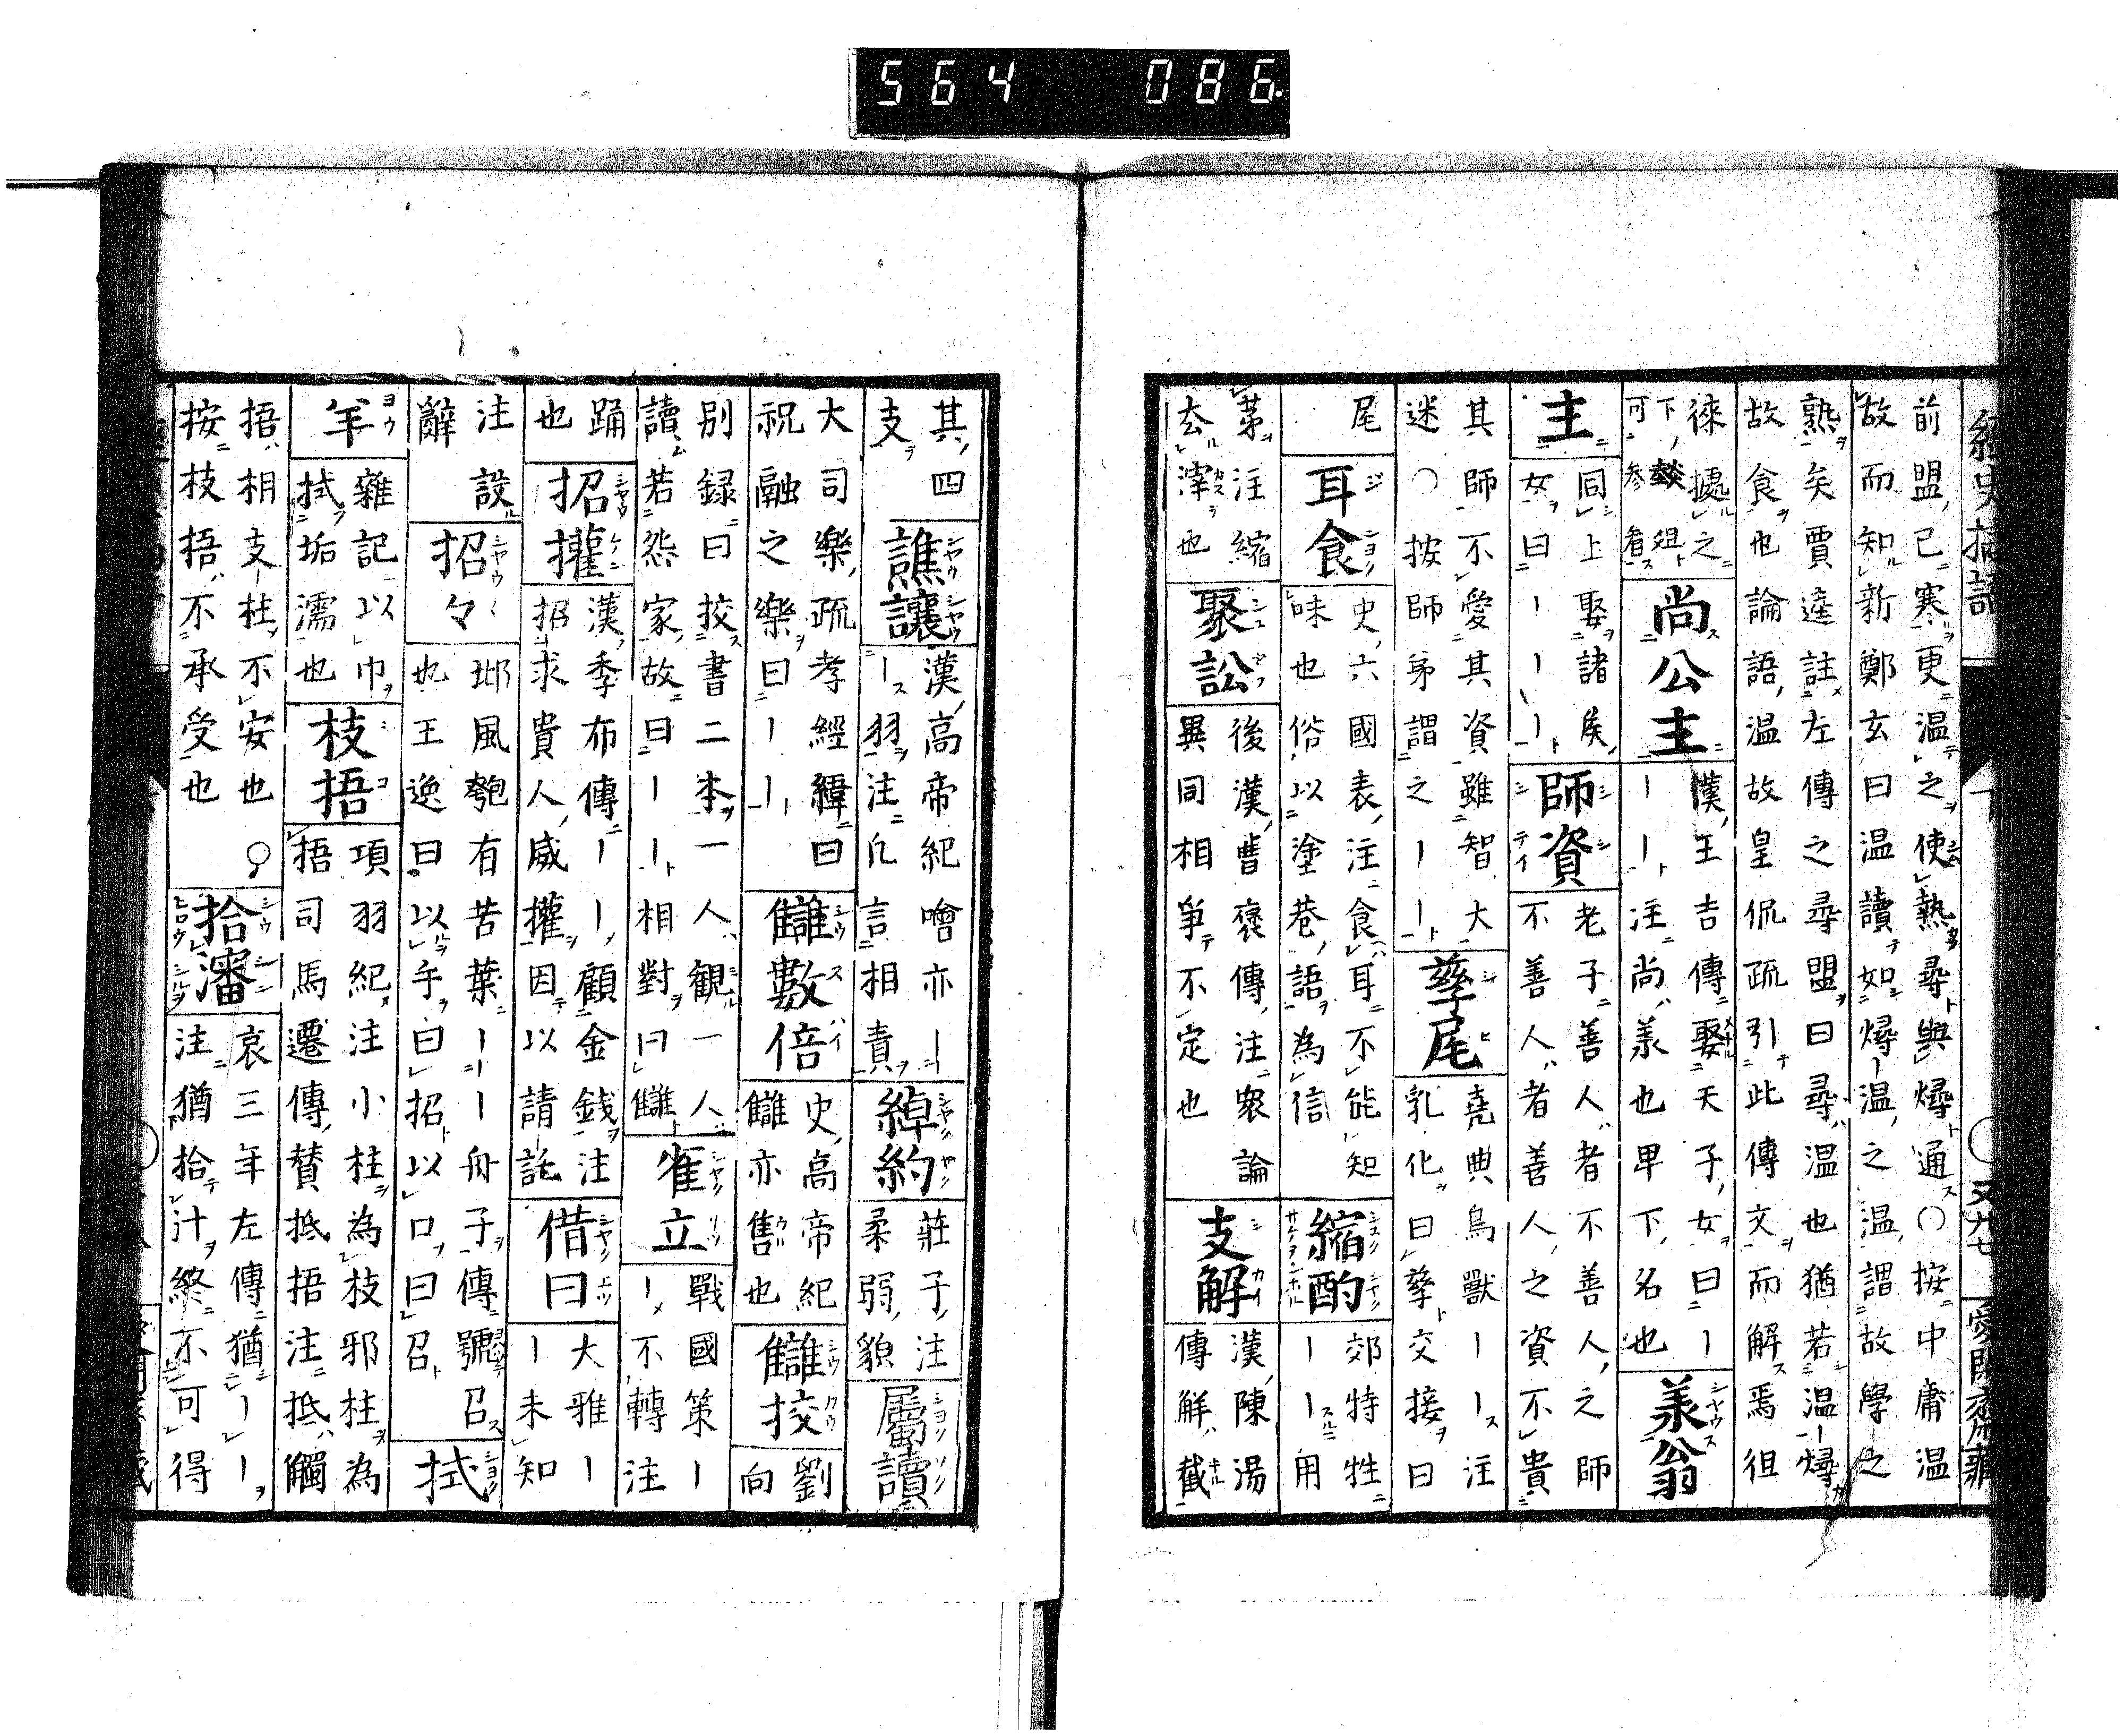 564 086
前盟已寒更温之使熱尋與燖通○按中庸温
故而知新鄭玄曰温讀如燖温之温謂故學之
熟矣賈逵註左傳之尋盟曰尋温也猶若温燖
故食也論語温故皇侃疏引此傳文而解焉徂
徠據之
下燚俎
可參看
尚公主
漢王吉傳娶天子女曰ー
ーー注尚承也卑下名也
承翁
主
同上娶諸侯
女曰ーーー
師資
老子善人者不善人之師
不善人者善人之資不貴
其師不愛其資雖智大
迷○按師弟謂之ーー
孳尾
堯典鳥獸ーー注
乳化曰孳交接曰
尾
耳食
史六國表注食耳不能知
味也俗以塗巷語為信
縮酌
郊特牲
ーー用
茅注縮
去滓也
聚訟
後漢曹褒傳注衆論
異同相爭不定也
支解
漢陳湯
傳解截
其四
支
譙讓
漢高帝紀噲亦ー
ー羽注凡言相責
綽約
莊子注
柔弱貌
屬讀
大司樂疏孝經緯曰
祝融之樂曰ーー
讎數倍
史高帝紀
讎亦售也
讎挍
劉
向
別録曰挍書二本一人觀一人
讀若怨家故曰ーー相對曰讎
雀立
戰國策ー
ー不轉注
踊
也
招權
漢季布傳ーー顧金錢注
招求貴人威權因以請託
借曰
大雅ー
ー未知
注設
辭
招々
邶風匏有苦葉ーー舟子傳號召
也王逸曰以手曰招以口曰召
拭
羊
雜記以巾
拭垢濡也
枝捂
項羽紀注小柱為枝邪柱為
捂司馬遷傳贊抵捂注抵觸
捂相支柱不安也○
按枝捂不承受也
拾瀋
哀三年左傳猶ーー
注猶拾汁終不可得